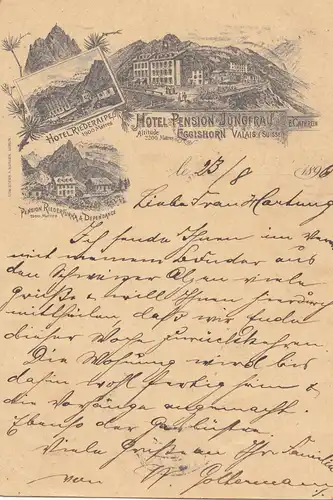 HOTEL RIEDERALP
1900 Mètres
HOTEL & PENSION JUNGFRAU
Altitude 2200 Mètres
EGGISHORN VALAIS (SUISSE)
E. CATHREIN
PENSION RIEDERFURKA & DEPENDANCE
le 23/8 1896
Liebe Frau Hartung
Ich sende Ihnen im Verein
mit meinem Bruder aus
den Schweizer Alpen viele
Grüße & will Ihnen hierdurch
mittheilen, daß wir Ende
dieser Woche zurückkehren
Die Wohnung wird bis
dahin wohl fertig sein &
die Vorhänge angemacht.
Ebenso der
Viele Grüße an Ihre Familie
von